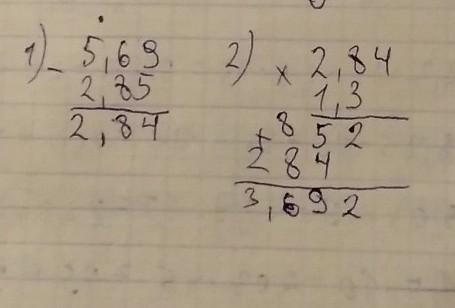 1) - 5,69
2,85
2,84
2) × 2,84
1,3
+ 852
284
3,692